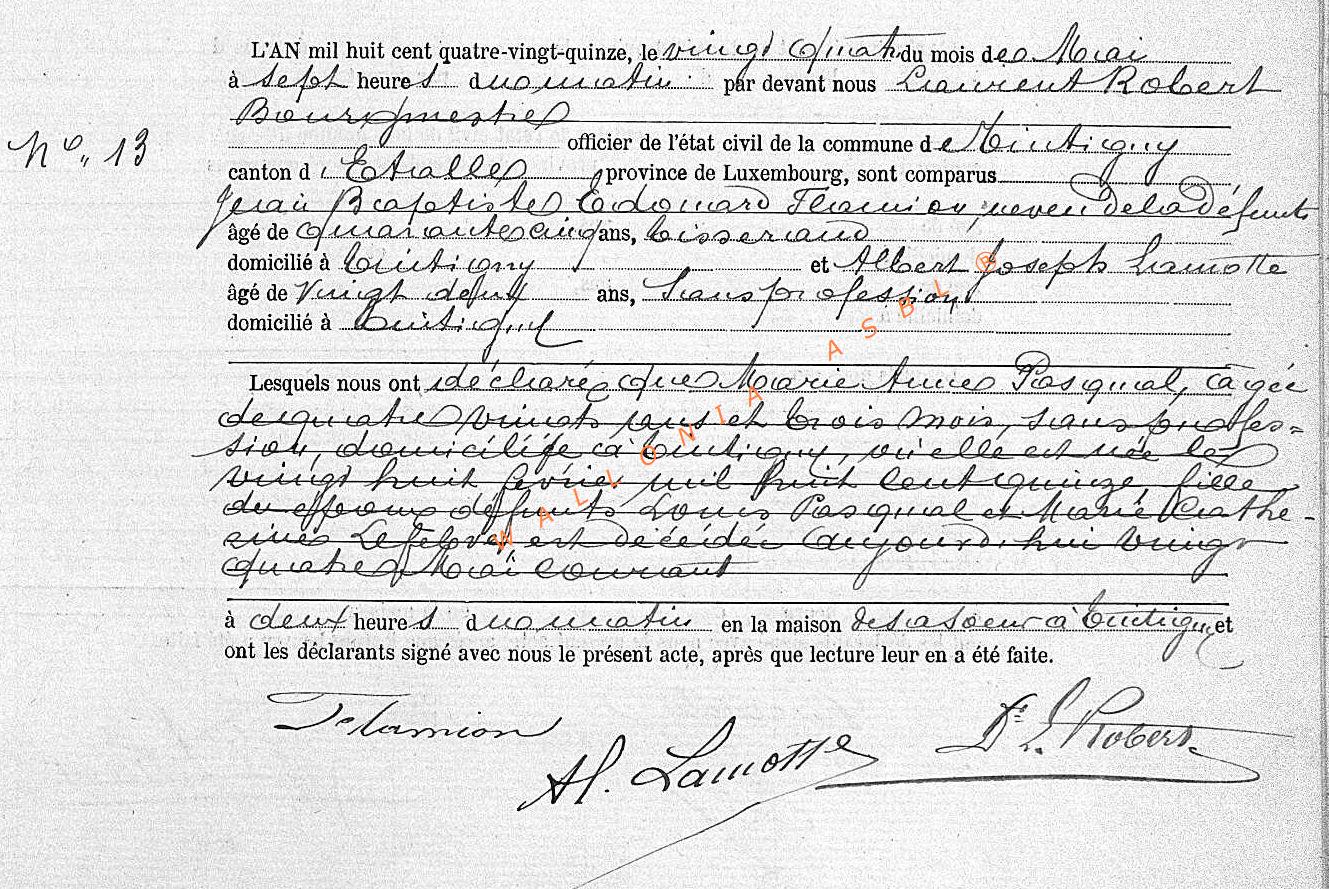 L'AN mil huit cent quatre-vingt-quinze, le vingt quatre du mois de Mai
à sept heures du matin par devant nous Laurent Robert
Bourgmestre
N° 13
officier de l'état civil de la commune de Tintigny
canton d'Etalle province de Luxembourg, sont comparus
Jean Baptiste Edouard Flamion, neveu de la défunte
âgé de quarante cinq ans, tisserand
domicilié à Tintigny et Albert Joseph Lamotte
âgé de vingt deux ans, sans profession
domicilié à Tintigny
Lesquels nous ont déclaré que Marie Anne Pasqual, âgée
de quatre vingts ans et trois mois, sans profes=
sion, domiciliée à Tintigny, où elle est née le
vingt huit février mil huit cent quinze, fille
des époux défunts Louis Pasqual et Marie Cathe-
rine Lefebvre, est décédée aujourd'hui vingt
quatre Mai courant
à deux heures du matin en la maison de sa soeur à Tintigny et
ont les déclarants signé avec nous le présent acte, après que lecture leur en a été faite.
Flamion
Al. Lamotte
Dr L. Robert
WALLONIA ASBL ®